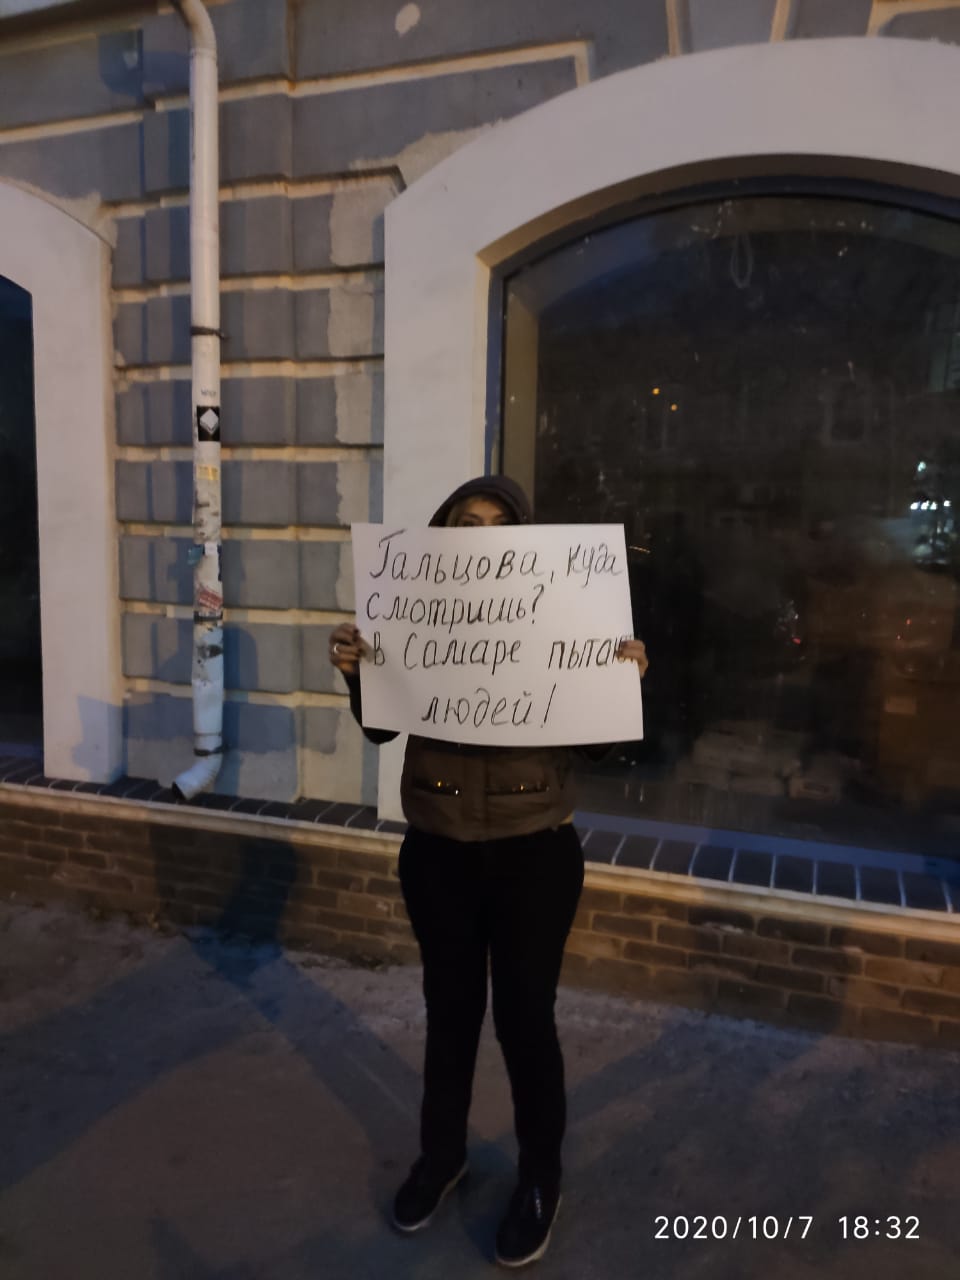 Гальцова, куда
смотришь?
в Самаре пытают
людей!
2020/10/7 18:32